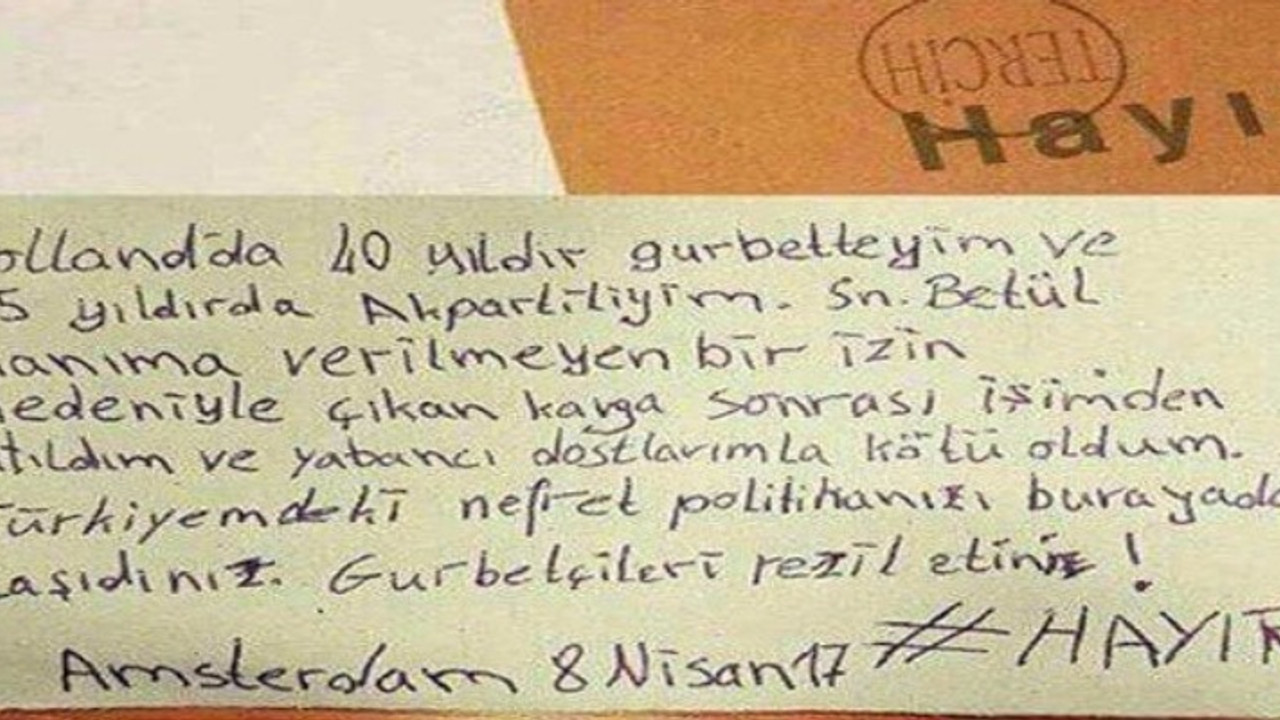 TERCİH
Hayı
olland'da 40 yıldır gurbetteyim ve
5 yıldırda Akpartiliyim. Sn. Betül
anıma verilmeyen bir izin
edeniyle çıkan kavga sonrası işimden
tıldım ve yabancı dostlarımla kötü oldum.
ürkiyemdeki nefret politikanızı burayada
aşıdınız. Gurbetçileri rezil etiniz!
Amsterdam 8 Nisan 17 #HAYIR